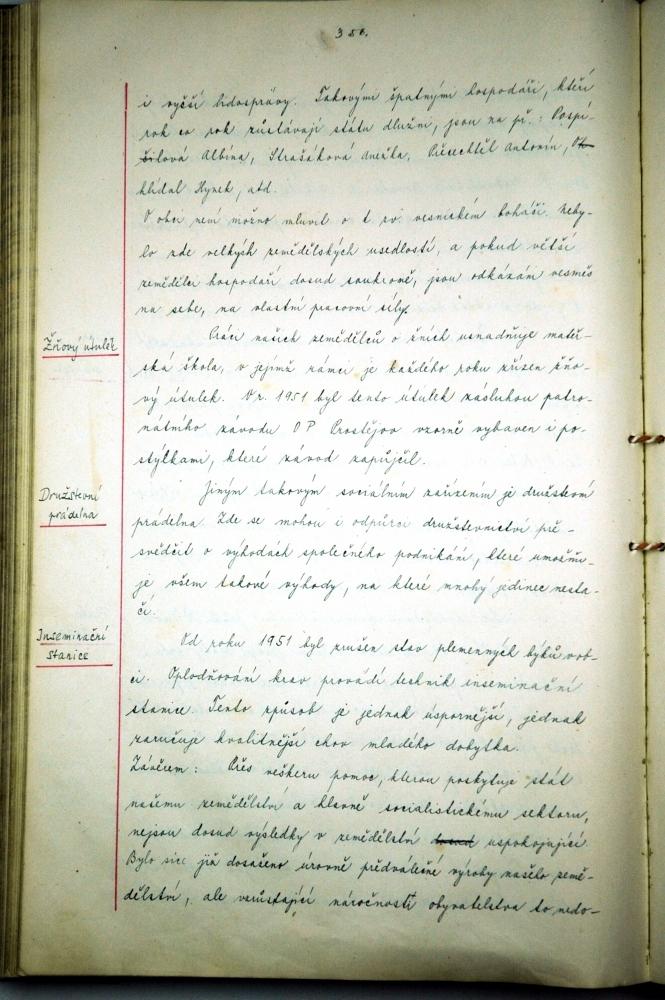 356.
i vyšší lidosprávy. Takovými špatnými hospodáři, kteří
rok co rok zůstávají státu dlužni, jsou na př.: Pospí-
šilová Albína, Strašáková Anežka, Čuřechtěl Antonín, Vy-
hlídal Hynek, atd.
V obci není možno mluvit o t. zv. vesnickém boháči. Neby-
lo zde velkých zemědělských usedlostí, a pokud větší
zemědělci hospodaří dosud soukromě, jsou odkázáni vesměs
na sebe, na vlastní pracovní síly.
Žňový útulek
Práci našich zemědělců o žních usnadňuje mateř-
ská škola, v jejímž rámci je každého roku zřízen žňo-
vý útulek. V r. 1951 byl tento útulek zásluhou patro-
nátního závodu OP Prostějov vzorně vybaven i po-
stýlkami, které závod zapůjčil.
Družstevní
prádelna
Jiným takovým sociálním zařízením je družstevní
prádelna. Zde se mohou i odpůrci družstevnictví pře-
svědčit o výhodách společného podnikání, které umožňu-
je všem takové výhody, na které mnohý jedinec nesta-
čí.
Inseminační
stanice
Od roku 1951 byl zrušen stav plemenných býků v ob-
ci. Oplodňování krav provádí technik inseminační
stanice. Tento způsob je jednak úspornější, jednak
zaručuje kvalitnější chov mladého dobytka.
Závěrem: Přes veškeru pomoc, kterou poskytuje stát
našemu zemědělství a hlavně socialistickému sektoru,
nejsou dosud výsledky v zemědělství dosud uspokojující.
Bylo sice již dosaženo úrovně předválečné výroby našeho země-
dělství, ale vzrůstající náročnosti obyvatelstva to nedo-